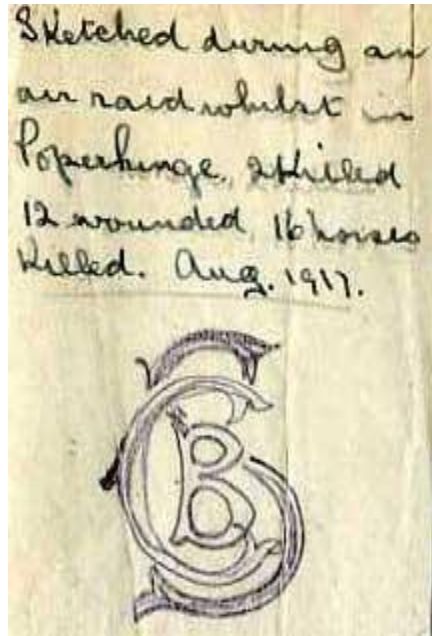 Sketched during an
air raid whilst in
Poperhinge, 2 Killed
12 wounded, 16 horses
Killed. Aug. 1917.
SCB